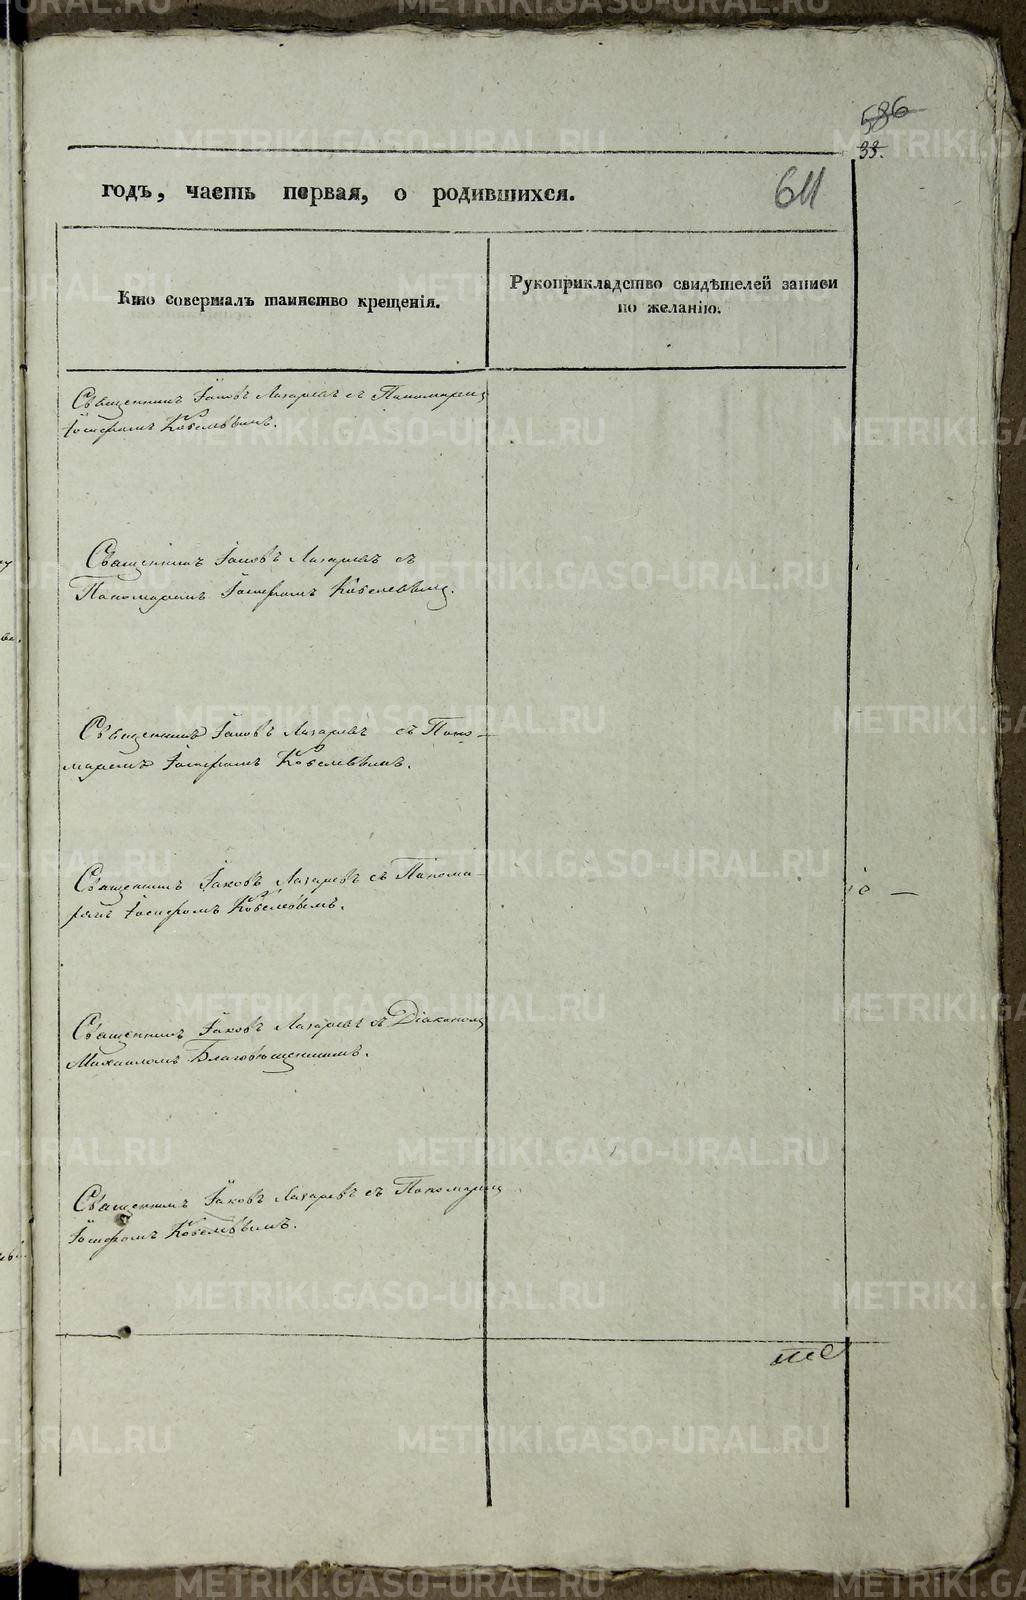 586
33.
611
годъ, часть первая, о родившихся.
Кто совершалъ таинство крещенія.
Рукоприкладство свидѣтелей записи
по желанію.
Священникъ Іаковъ Лазаревъ съ Пономаремъ
Іосифомъ Кобелевымъ.
Священникъ Іаковъ Лазаревъ съ
Пономаремъ Іосифомъ Кобелевымъ.
Священникъ Іаковъ Лазаревъ съ Поно-
маремъ Іосифомъ Кобелевымъ.
Священникъ Іаковъ Лазаревъ съ Понома-
ремъ Іосифомъ Кобелевымъ.
Священникъ Іаковъ Лазаревъ съ Діакономъ
Михаиломъ Благовѣщенскимъ.
Священникъ Іаковъ Лазаревъ съ Пономаремъ
Іосифомъ Кобелевымъ.
METRIKI.GASO-URAL.RU